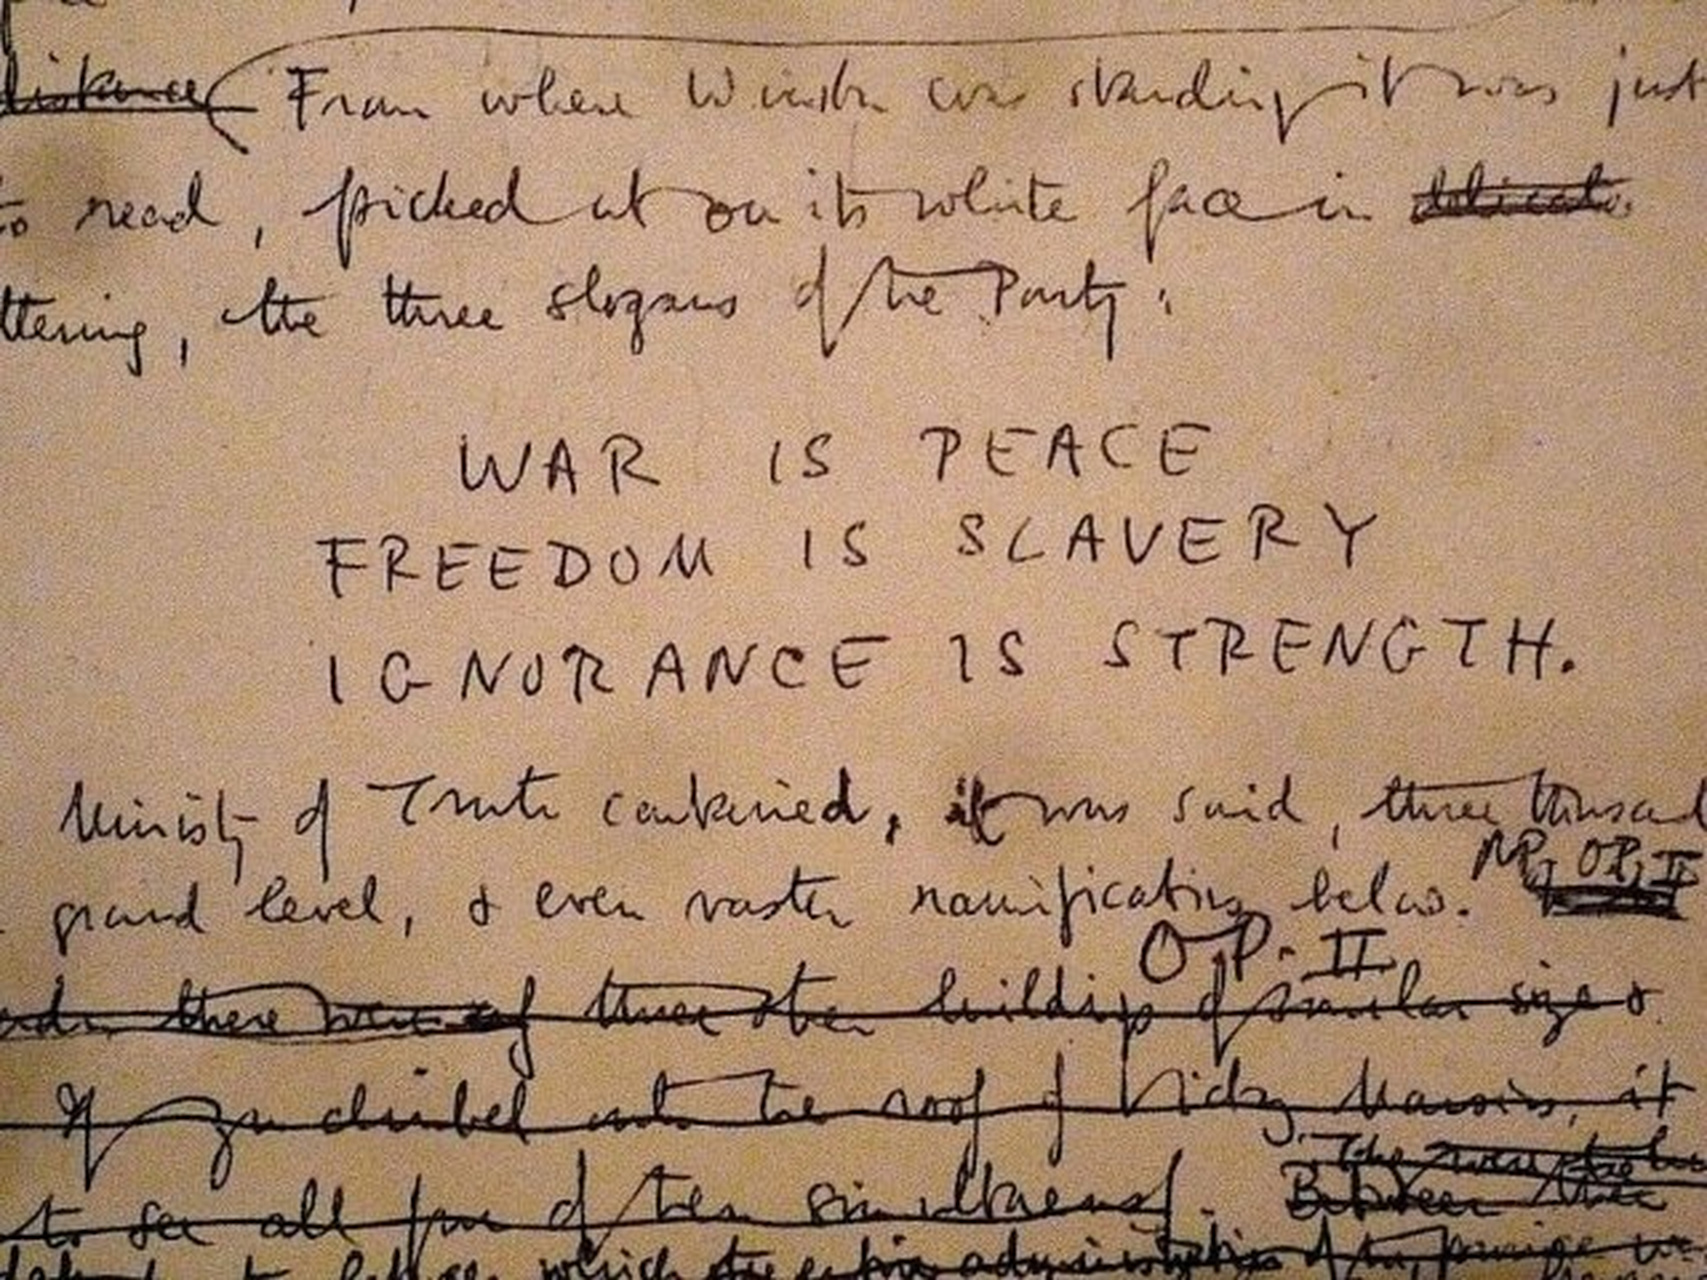 distance From where Winston was standing it was just
to read, picked out on its white face in
ttering, the three slogans of the Party:
WAR IS PEACE
FREEDOM IS SLAVERY
IGNORANCE IS STRENGTH.
Ministry of Truth contained, it was said, three thousand
ground level, & even vaster ramifications below.
O.P. II
there were three other buildings of similar size &
If you climbed onto the roof of Victory Mansions, it
They were
to see all four of them simultaneously. Between
which the administration of